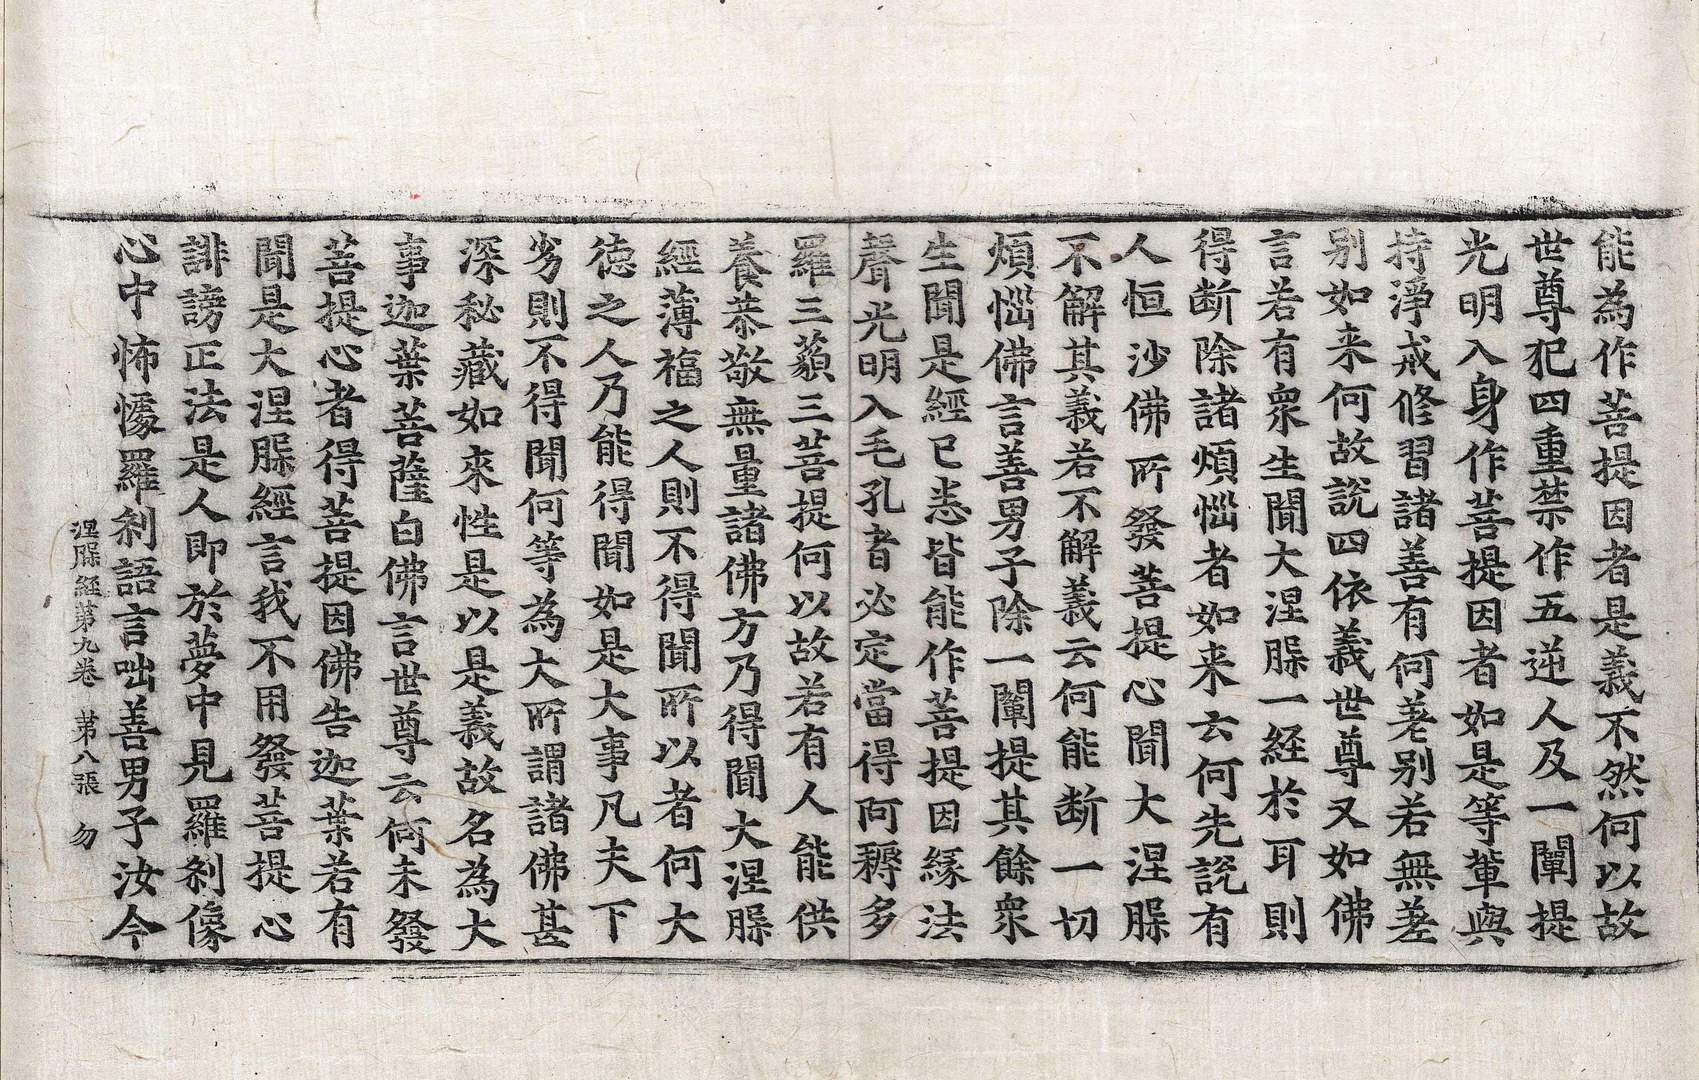 能為作菩提因者是義不然何以故
世尊犯四重禁作五逆人及一闡提
光明入身作菩提因者如是等輩與
持淨戒修習諸善有何差別若無差
别如来何故說四依義世尊又如佛
言若有衆生聞大涅槃一経於耳則
得断除諸煩惱者如来云何先説有
人恒沙佛所發菩提心聞大涅槃
不解其義若不解義云何能断一切
煩惱佛言善男子除一闡提其餘衆
生聞是經已悉皆能作菩提因緣法
聲光明入毛孔者必定當得阿耨多
羅三藐三菩提何以故若有人能供
養恭敬無量諸佛方乃得聞大涅槃
經薄福之人則不得聞所以者何大
德之人乃能得聞如是大事凡夫下
劣則不得聞何等為大所謂諸佛甚
深秘藏如來性是以是義故名為大
事迦葉菩薩白佛言世尊云何未發
菩提心者得菩提因佛告迦葉若有
聞是大涅槃經言我不用發菩提心
誹謗正法是人即於夢中見羅刹像
心中怖懅羅刹語言咄善男子汝今
涅槃経第九卷 第八張 勿